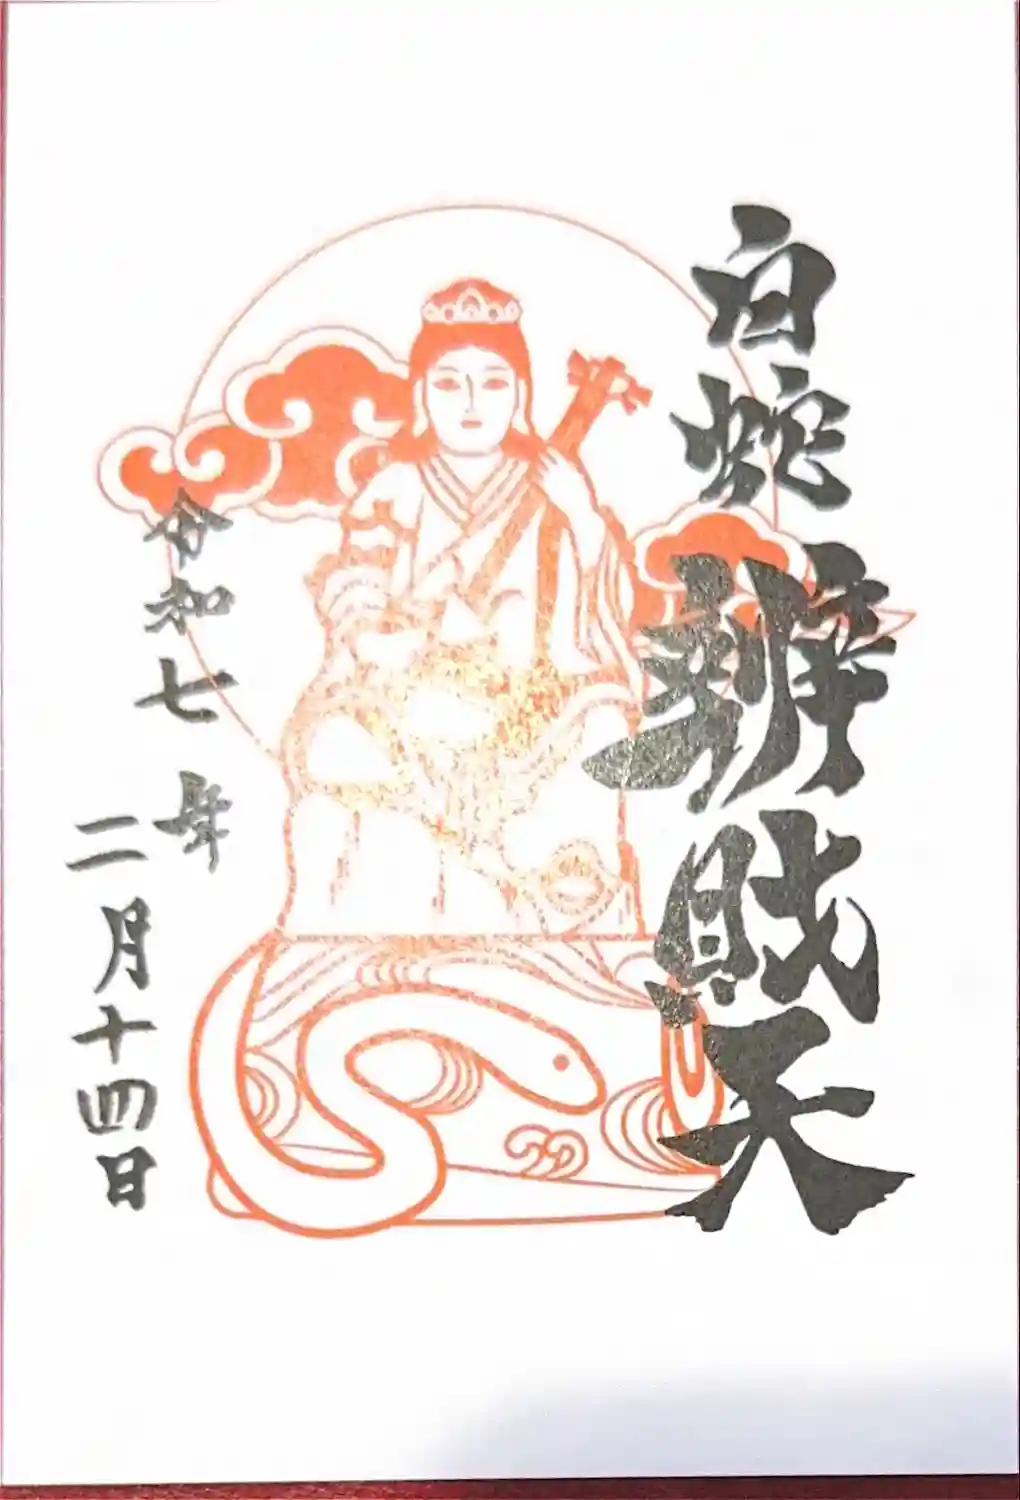 白蛇辨財天
令和七年
二月十四日